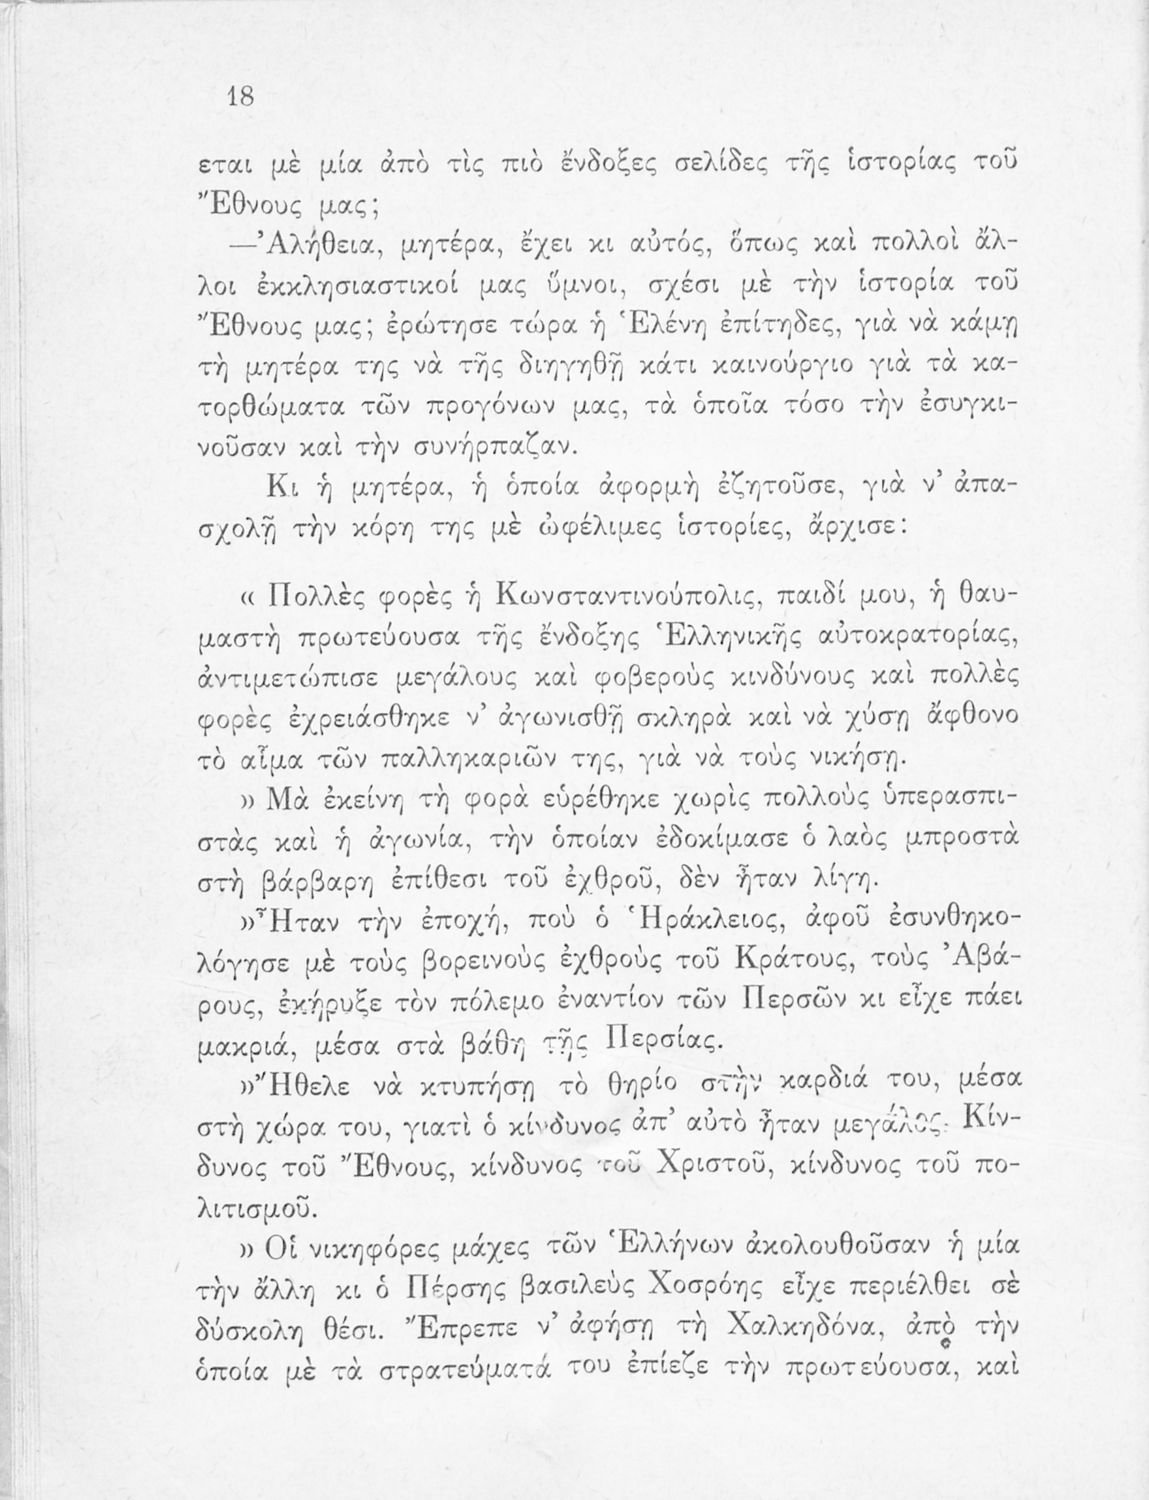 18
εται μὲ μία ἀπὸ τὶς πιὸ ἔνδοξες σελίδες τῆς ἱστορίας τοῦ
Ἔθνους μας;
—Ἀλήθεια, μητέρα, ἔχει κι αὐτός, ὅπως καὶ πολλοὶ ἄλ-
λοι ἐκκλησιαστικοί μας ὕμνοι, σχέσι μὲ τὴν ἱστορία τοῦ
Ἔθνους μας; ἐρώτησε τώρα ἡ Ἑλένη ἐπίτηδες, γιὰ νὰ κάμῃ
τὴ μητέρα της νὰ τῆς διηγηθῇ κάτι καινούργιο γιὰ τὰ κα-
τορθώματα τῶν προγόνων μας, τὰ ὁποῖα τόσο τὴν ἐσυγκι-
νοῦσαν καὶ τὴν συνήρπαζαν.
Κι ἡ μητέρα, ἡ ὁποία ἀφορμὴ ἐζητοῦσε, γιὰ ν’ ἀπα-
σχολῇ τὴν κόρη της μὲ ὠφέλιμες ἱστορίες, ἄρχισε:
« Πολλὲς φορὲς ἡ Κωνσταντινούπολις, παιδί μου, ἡ θαυ-
μαστὴ πρωτεύουσα τῆς ἔνδοξης Ἑλληνικῆς αὐτοκρατορίας,
ἀντιμετώπισε μεγάλους καὶ φοβεροὺς κινδύνους καὶ πολλὲς
φορὲς ἐχρειάσθηκε ν’ ἀγωνισθῇ σκληρὰ καὶ νὰ χύσῃ ἄφθονο
τὸ αἷμα τῶν παλληκαριῶν της, γιὰ νὰ τοὺς νικήσῃ.
» Μὰ ἐκείνη τὴ φορὰ εὑρέθηκε χωρὶς πολλοὺς ὑπερασπι-
στὰς καὶ ἡ ἀγωνία, τὴν ὁποίαν ἐδοκίμασε ὁ λαὸς μπροστὰ
στὴ βάρβαρη ἐπίθεσι τοῦ ἐχθροῦ, δὲν ἦταν λίγη.
»Ἦταν τὴν ἐποχή, ποὺ ὁ Ἡράκλειος, ἀφοῦ ἐσυνθηκο-
λόγησε μὲ τοὺς βορεινοὺς ἐχθροὺς τοῦ Κράτους, τοὺς Ἀβά-
ρους, ἐκήρυξε τὸν πόλεμο ἐναντίον τῶν Περσῶν κι εἶχε πάει
μακριά, μέσα στὰ βάθη τῆς Περσίας.
»Ἤθελε νὰ κτυπήσῃ τὸ θηρίο στὴν καρδιά του, μέσα
στὴ χώρα του, γιατὶ ὁ κίνδυνος ἀπ’ αὐτὸ ἦταν μεγάλος. Κίν-
δυνος τοῦ Ἔθνους, κίνδυνος τοῦ Χριστοῦ, κίνδυνος τοῦ πο-
λιτισμοῦ.
» Οἱ νικηφόρες μάχες τῶν Ἑλλήνων ἀκολουθοῦσαν ἡ μία
τὴν ἄλλη κι ὁ Πέρσης βασιλεὺς Χοσρόης εἶχε περιέλθει σὲ
δύσκολη θέσι. Ἔπρεπε ν’ ἀφήσῃ τὴ Χαλκηδόνα, ἀπὸ τὴν
ὁποία μὲ τὰ στρατεύματά του ἐπίεζε τὴν πρωτεύουσα, καὶ